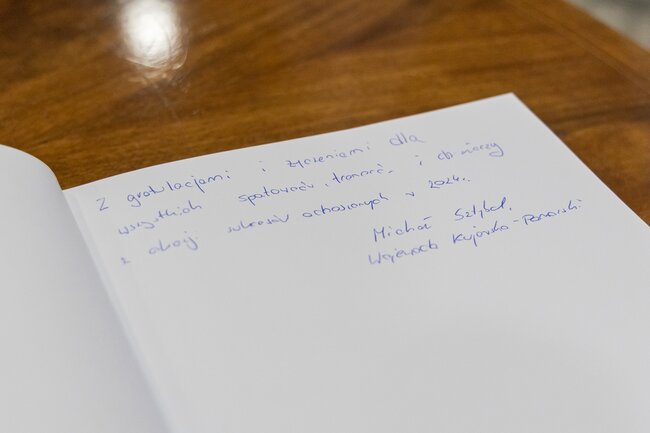 Z gratulacjami i życzeniami dla
wszystkich sportowców, trenerów i działaczy
z okazji sukcesów odnoszonych w 2024r.
Michał Sztybel
Wojewoda Kujawsko-Pomorski